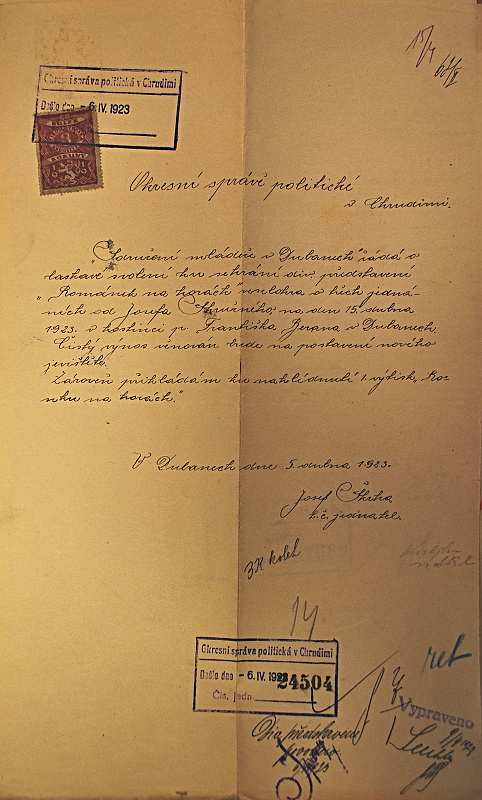 15/4
Okresní správa politická v Chrudimi
Došlo dne - 6. IV. 1923
3
KORUNY
Okresní správě politické
v Chrudimi.
„Sdružení mládeže v Dubanech" žádá o
laskavé svolení ku sehrání div. představení
„Románek na horách" veselohra o třech jedná-
ních od Josefa na den 15. dubna
1923. v hostinci p. Františka Berana v Dubanech.
Čistý výnos věnován bude na postavení nového
jeviště.
Zároveň přikládám ku nahlédnutí 1. výtisk „Ro-
nku na horách."
V Dubanech dne 5. dubna 1923.
Josef
t.č. jednatel.
3K kolek
14
Okresní správa politická v Chrudimi
Došlo dne - 6. IV. 1923 24504
Čís. jedn.
ret
Vypraveno
představení